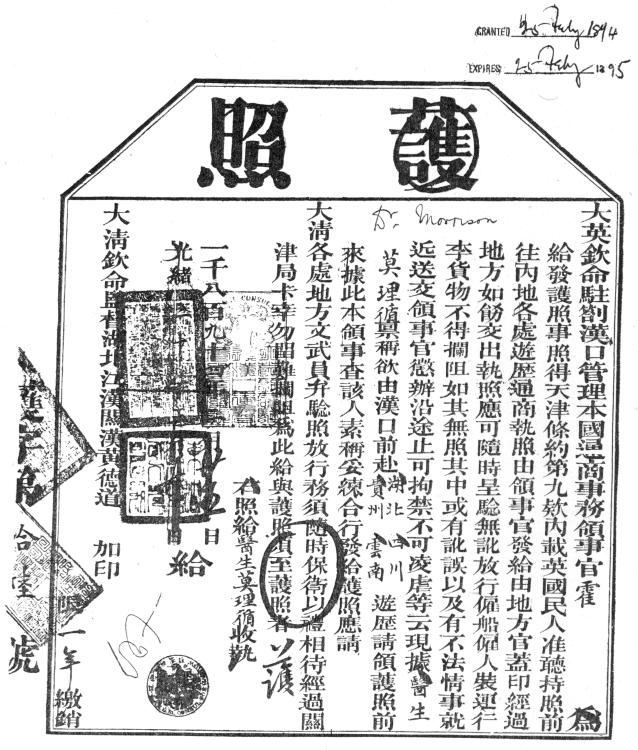 GRANTED 25 July 1894
EXPIRES 25 July 1895
護照
Dr. Morrison
大英欽命駐劄漢口管理本國通商事務領事官霍 為
給發護照事照得天津條約第九欵內載英國民人准聽持照前
往內地各處遊歷通商執照由領事官發給由地方官蓋印經過
地方如飭交出執照應可隨時呈驗無訛放行僱船僱人裝運行
李貨物不得攔阻如其無照其中或有訛誤以及有不法情事就
近送交領事官懲辦沿途止可拘禁不可凌虐等云現據醫生
莫理循稟稱欲由漢口前赴湖北四川貴州雲南遊歷請領護照前
來據此本領事查該人素稱妥練合行發給護照應請
大清各處地方文武員弁驗照放行務須隨時保衛以禮相待經過關
津局卡幸勿留難攔阻為此給與護照須至護照者 護
右照給醫生莫理循收執
一千八百九十四年 月 五日 給
光緒 日
大清欽命監督湖北江漢關漢黃德道 加印
限一年繳銷
護字第 拾陸號